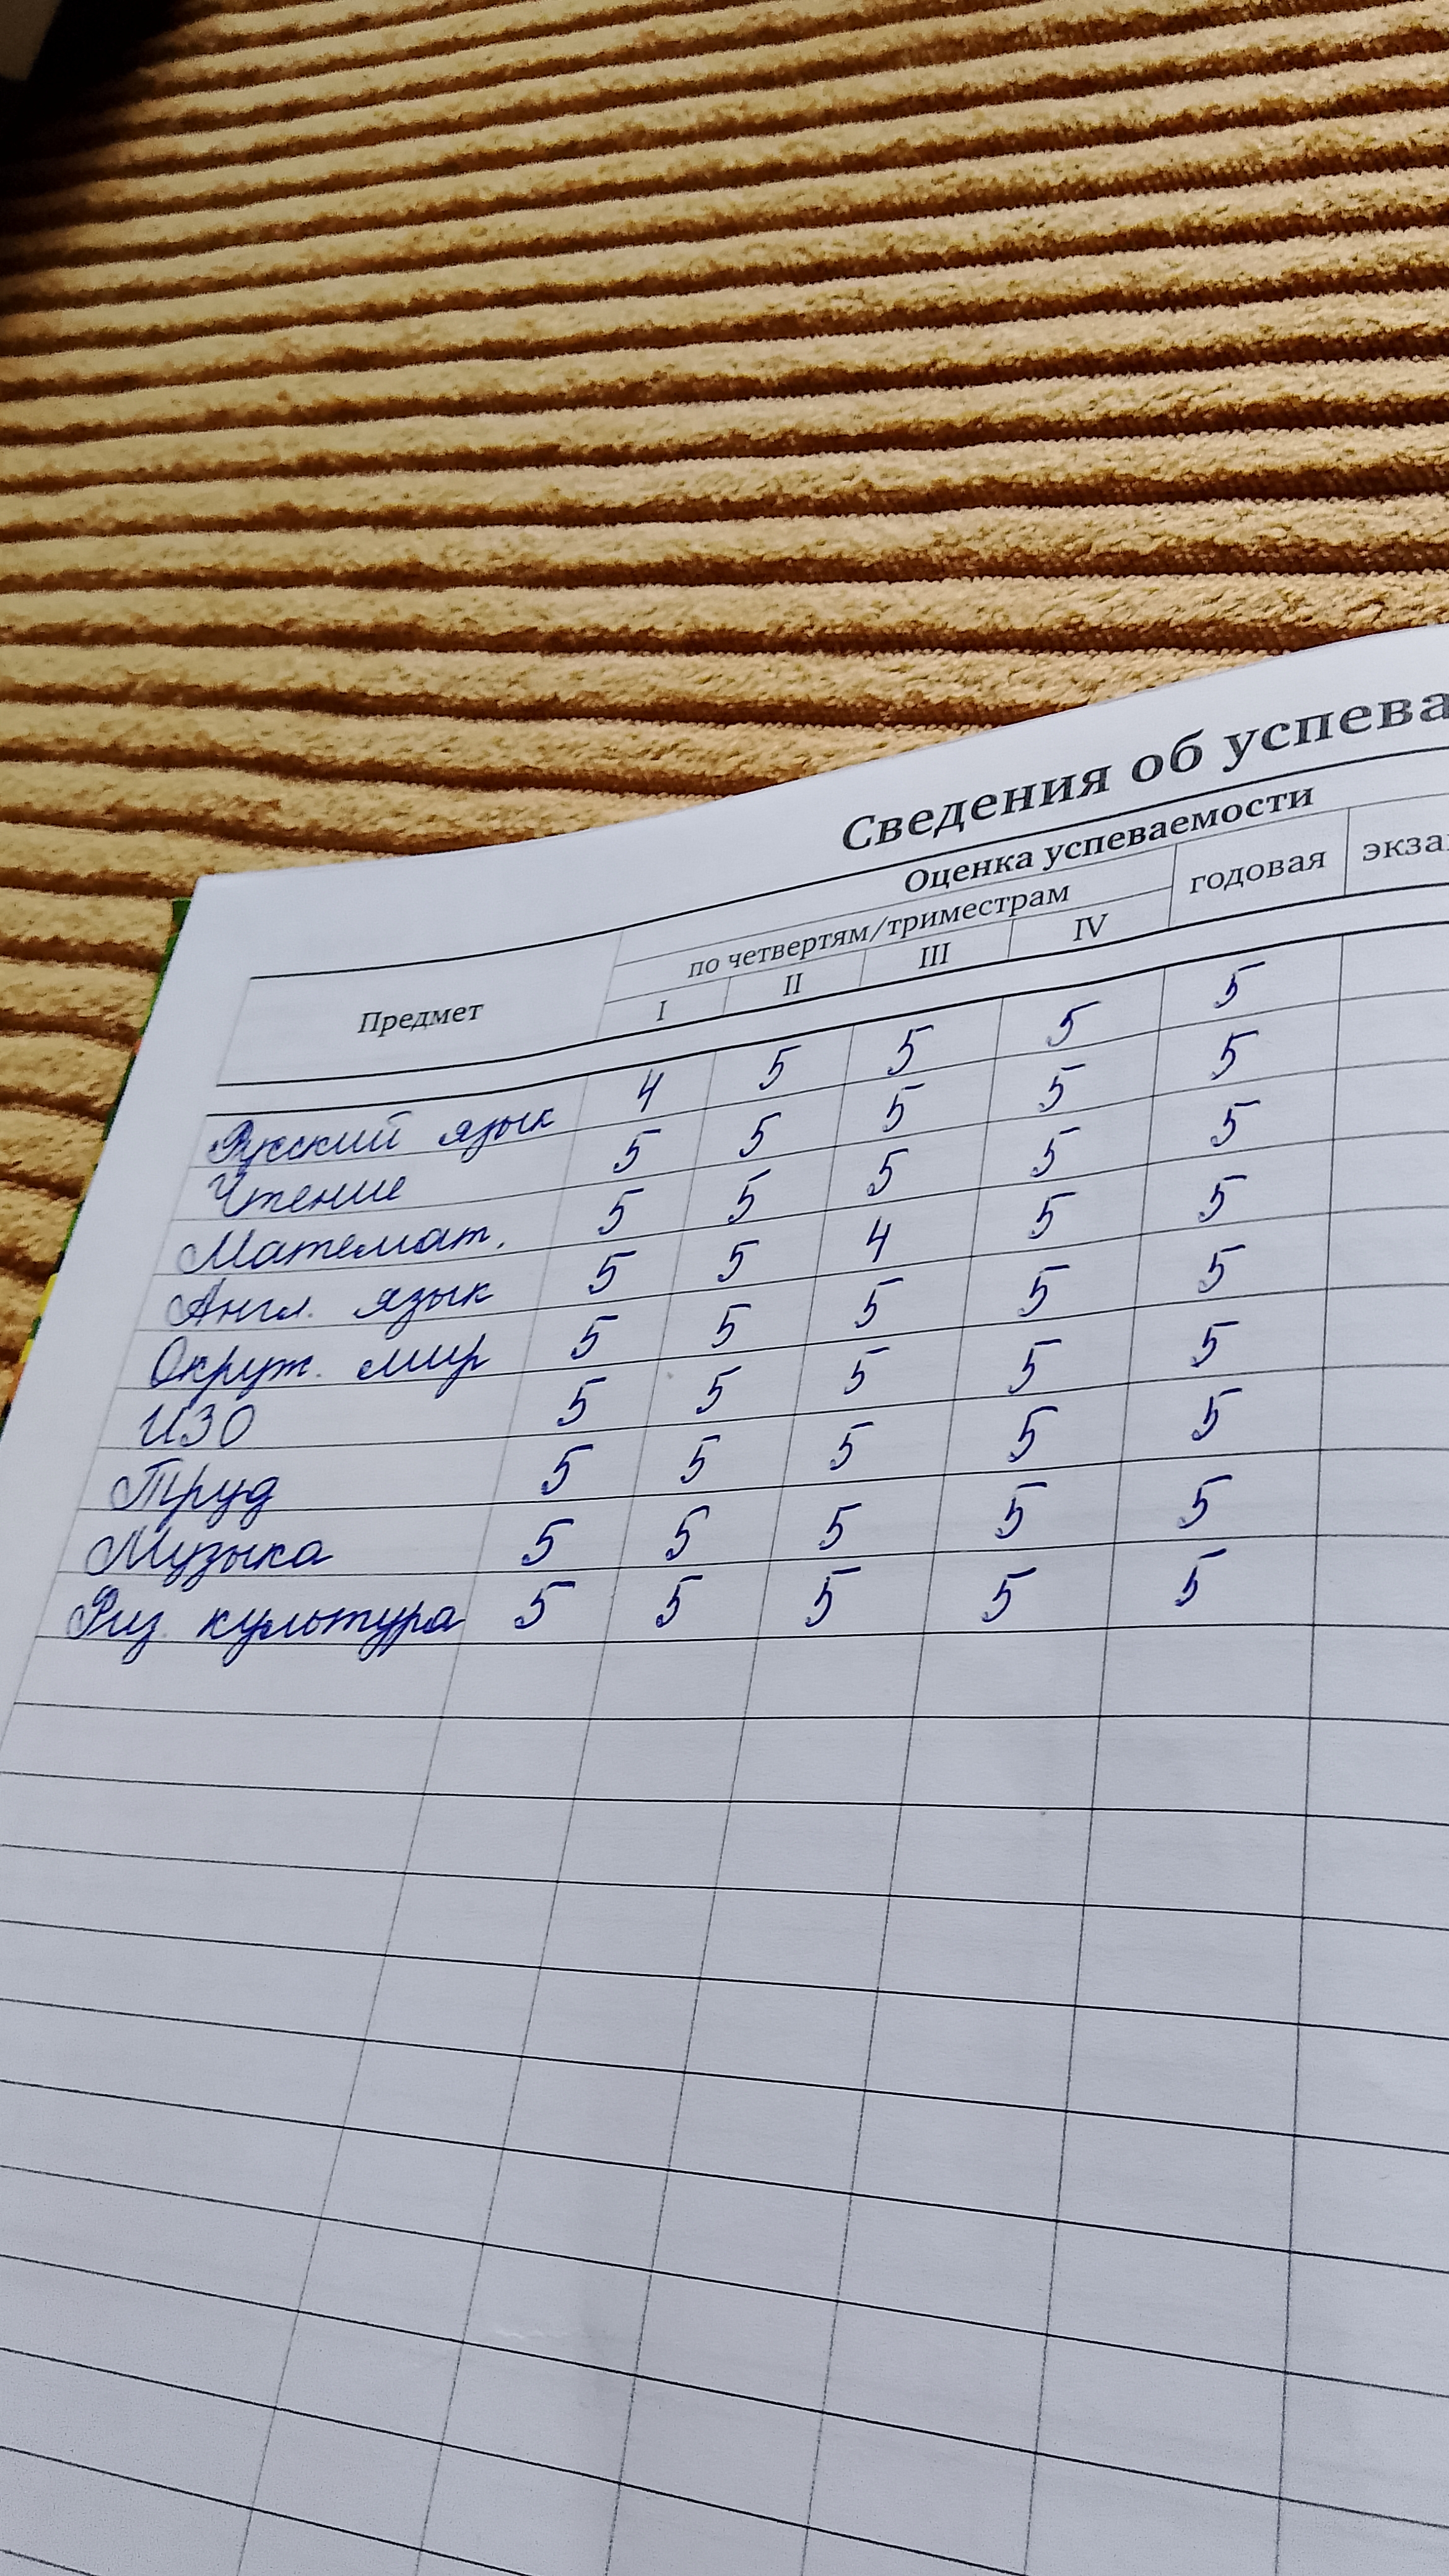 Сведения об успева
Оценка успеваемости
по четвертям/триместрам годовая экза
Предмет I II III IV
Русский язык 4 5 5 5 5
Чтение 5 5 5 5 5
Математ. 5 5 5 5 5
Англ. язык 5 5 4 5 5
Окруж. мир 5 5 5 5 5
ИЗО 5 5 5 5 5
Труд 5 5 5 5 5
Музыка 5 5 5 5 5
Физ. культура 5 5 5 5 5